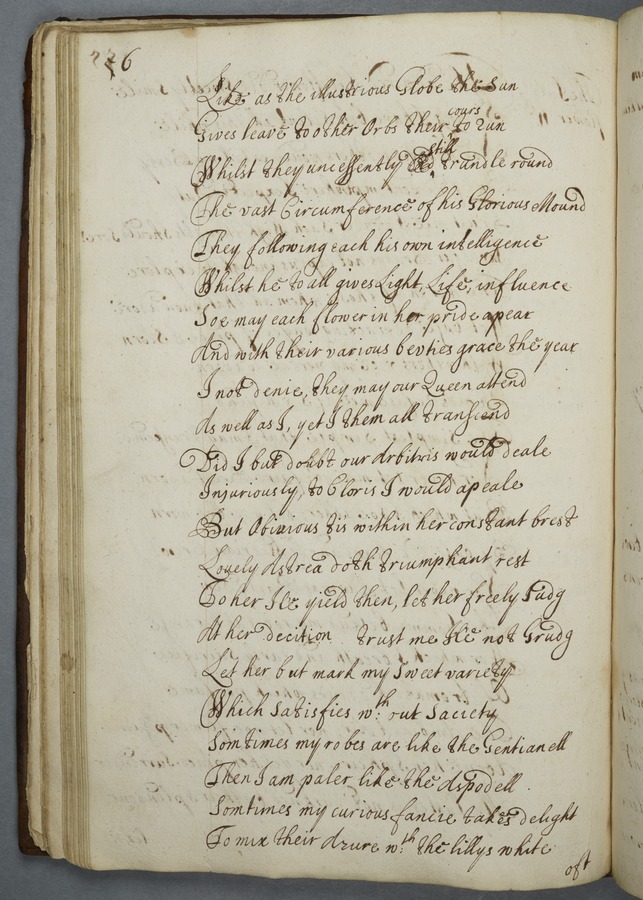 226
Like as the illustrious Globe the Sun
Gives leave to other Orbs their cours to run
Whilst they uncessently still trandle round
The vast Circumference of his Glorious Mound
They following each his own intelligence
Whilst he to all gives Light, Life, influence
Soe may each flower in her pride apear
And with their various bevties grace the year
I not denie, they may our Queen attend
As well as I, yet I them all transcend
Did I but doubt our Arbitris would deale
Injuriously, to Cloris I would apeale
But Obivious tis within her constant brest
Lovely Astrea doth triumphant rest
To her Ile yield then, let her freely Judg
At her decition trust me Ile not Grudg
Let her but mark my sweet variety
Which satisfies wth out saciety
Somtimes my robes are like the Gentianell
Then I am paler like the Aspodell.
Somtimes my curious fancie takes delight
To mix their Azure wth the lillys white
oft